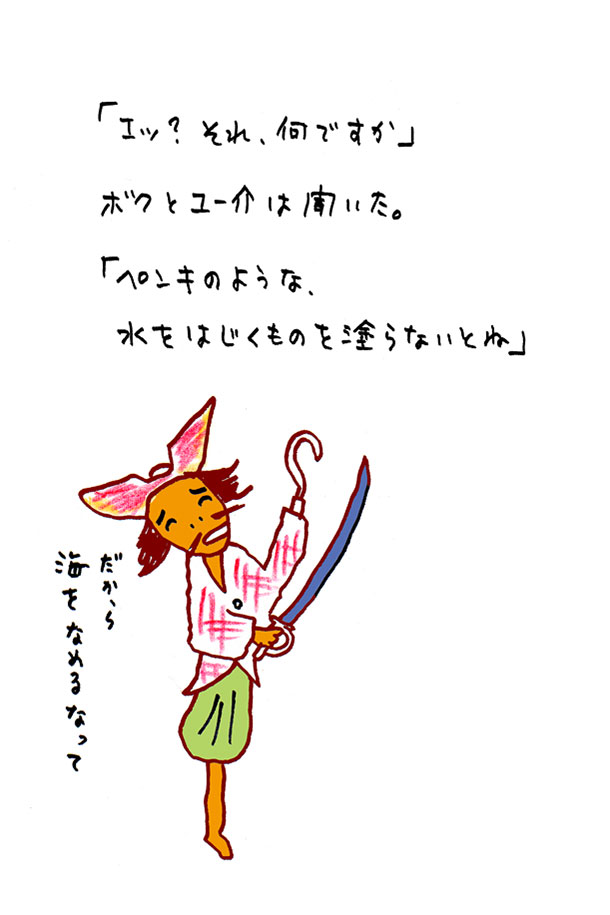 「エッ? それ、何ですか」
ボクとユー介は聞いた。
「ペンキのような、
水をはじくものを塗らないとね」
だから
海をなめるなって